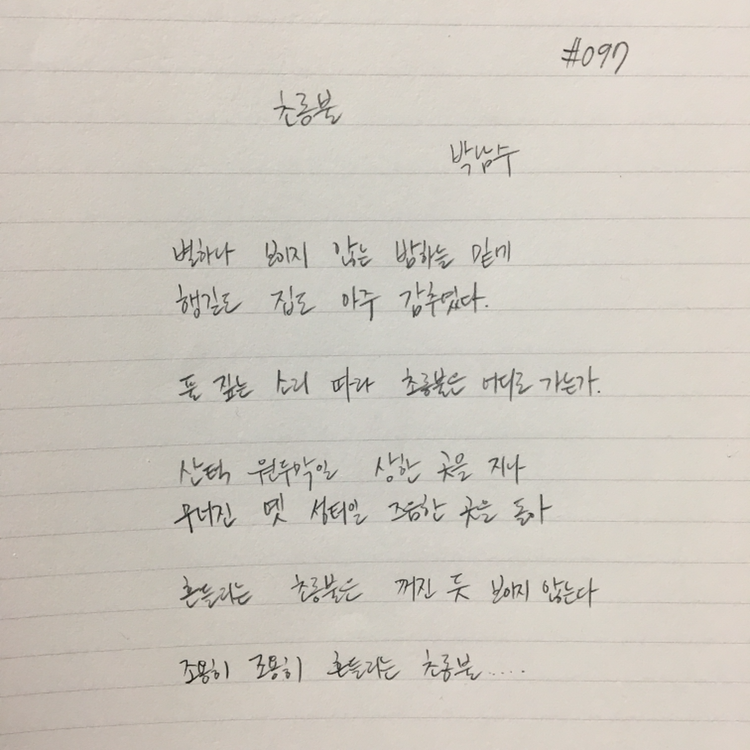 #097
초롱불
박남수
별하나 보이지 않는 밤하늘 밑에
행길도 집도 아주 감추였다.
풀 짚는 소리 따라 초롱불은 어디로 가는가.
산턱 원두막일 상한 곳을 지나
무너진 옛 성터일 즈음한 곳을 돌아
흔들리는 초롱불은 꺼진 듯 보이지 않는다
조용히 조용히 흔들리는 초롱불.....